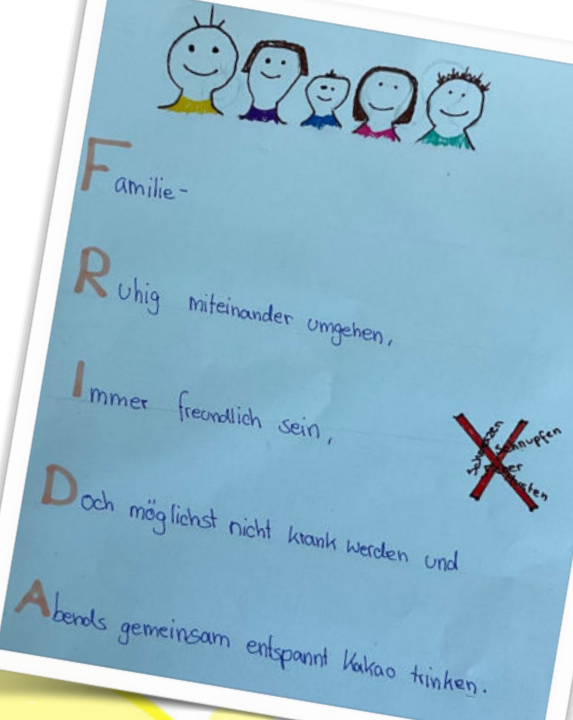 Familie-
Ruhig miteinander umgehen,
Immer freundlich sein,
Schnupfen
Doch möglichst nicht krank werden und
Abends gemeinsam entspannt Kakao trinken.